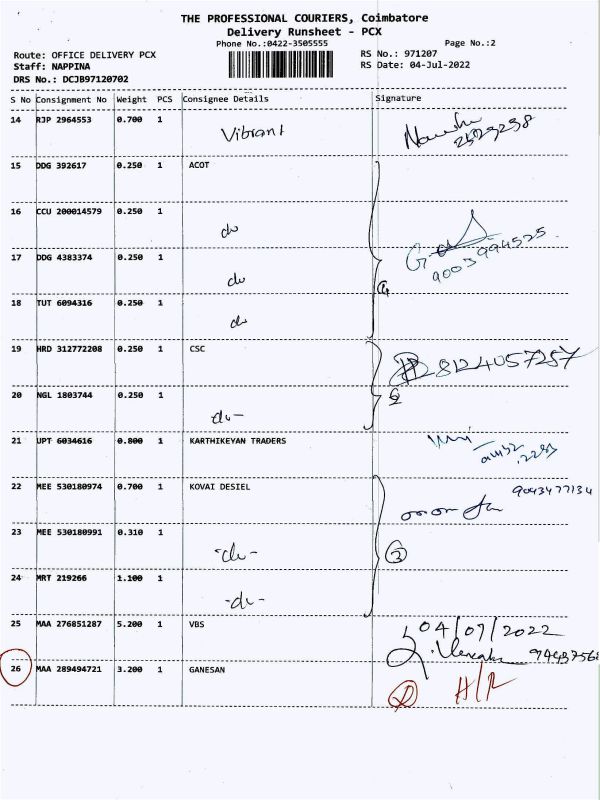 THE PROFESSIONAL COURIERS, Coimbatore
Delivery Runsheet - PCX
Phone No.:0422-3505555
Page No.:2
Route: OFFICE DELIVERY PCX
RS No.: 971207
Staff: NAPPINA
RS Date: 04-Jul-2022
DRS No.: DCJB97120702
S No Consignment No Weight PCS Consignee Details Signature
14 RJP 2964553 0.700 1 Vibrant
15 DDG 392617 0.250 1 ACOT
16 CCU 200014579 0.250 1 do
9003994525
17 DDG 4383374 0.250 1 do
4
18 TUT 6094316 0.250 1 do
19 HRD 312772208 0.250 1 CSC 8124057257
2
20 NGL 1803744 0.250 1 -do-
21 UPT 6034616 0.800 1 KARTHIKEYAN TRADERS
22 MEE 530180974 0.700 1 KOVAI DESIEL 9043477134
23 MEE 530180991 0.310 1 -do- 3
24 MRT 219266 1.100 1 -do-
25 MAA 276851287 5.200 1 VBS 04/07/2022
26 MAA 289494721 3.200 1 GANESAN H/R